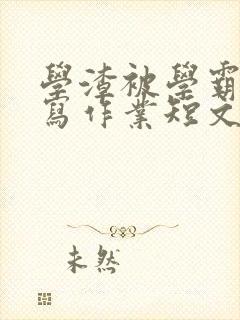 學渣被學霸
寫作業短文
未然